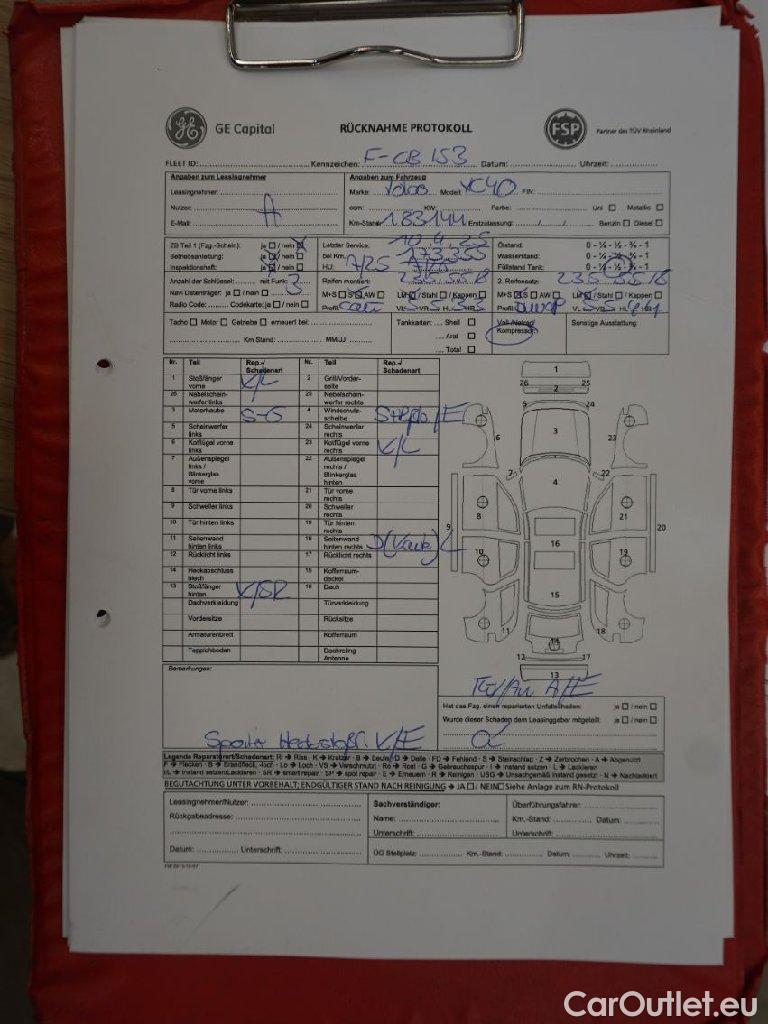 GE Capital RÜCKNAHME PROTOKOLL FSP Partner des TÜV Rheinland
FLEET ID: Kennzeichen: F-CB 153 Datum: Uhrzeit:
Angaben zum Leasingnehmer Angaben zum Fahrzeug
Leasingnehmer: Marke: Volvo Model: XC40 FIN:
Nutzer: ccm: KW: Farbe: Uni Metallic
E-Mail: A Km-Stand: 183144 Erstzulassung: / / Benzin Diesel
ZB Teil 1 (Fzg.-Schein): ja / nein Letzter Service: 10.4.25 Ölstand: 0 - ¼ - ½ - ¾ - 1
Betriebsanleitung: ja / nein bei Km: 173.355 Wasserstand: 0 - ¼ - ½ - ¾ - 1
Inspektionsheft: ja / nein HU: 7/25 Füllstand Tank: 0 - ¼ - ½ - ¾ - 1
Anzahl der Schlüssel: mit Funk: 3 Reifen montiert: 235.55.18 2. Reifensatz: 235.55.18
Navi Datenträger: ja / nein M+S S AW LM / Stahl / Kappen M+S S AW LM / Stahl / Kappen
Radio Code: Codekarte: ja / nein Profil: Conti Profil:
Tacho Motor Getriebe erneuert bei: Tankkarten: Shell Sonstige Ausstattung:
Km Stand: MM/JJ Aral Kompressor:
Total
Nr. Teil Rep.-/ Schadenart Nr. Teil Rep.-/ Schadenart
1 Stoßfänger vorne K/L 2 Grill/Vorderseite
Nebelscheinwerfer links Nebelscheinwerfer rechts
3 Motorhaube 4 Windschutzscheibe
5 Scheinwerfer links 24 Scheinwerfer rechts
6 Kotflügel vorne links 23 Kotflügel vorne rechts K/L
7 Außenspiegel links / Blinkerglas vorne 22 Außenspiegel rechts / Blinkerglas hinten
8 Tür vorne links 21 Tür vorne rechts
9 Schweller links 20 Schweller rechts
10 Tür hinten links 19 Tür hinten rechts
11 Seitenwand hinten links 18 Seitenwand hinten rechts
12 Rücklicht links 17 Rücklicht rechts
14 Heckabschluss blech 15 Kofferraumdeckel
13 Stoßfänger hinten K/SR 16 Dach
Dachverkleidung Türverkleidung
Vordersitze Rücksitze
Armaturenbrett Kofferraum
Teppichboden Dachreling Antenne
1
26 2 25
5 24
6 3 23
7 22
4
8 21
9 20
16
10 19
15
11 18
14
12 17
13
Bemerkungen:
Hat das Fzg. einen reparierten Unfallschaden: ja / nein
Wurde dieser Schaden dem Leasinggeber mitgeteilt: ja / nein
Spoiler Heckstoßf. K/E
Legende Reparaturart/Schadenart: Ri → Riss · K → Kratzer · B → Beule/D → Delle · FD → Fehlend · S → Steinschlag · Z → Zerbrochen · A → Abgenutzt
F → Flecken · B → Brandfleck, -loch · Lo → Loch · VS → Verschmutz. · Ro → Rost · G → Gebrauchsspur · I → Instand setzen · L → Lackieren
I/L → Instand setzen/Lackieren · SR → smart repair · SP → spot repair · E → Erneuern · R → Reinigen · USG → Unsachgemäß instand gesetz · N → Nachlackiert
BEGUTACHTUNG UNTER VORBEHALT; ENDGÜLTIGER STAND NACH REINIGUNG → JA / NEIN Siehe Anlage zum RN-Protokoll
Leasingnehmer/Nutzer: Sachverständiger: Überführungsfahrer:
Rückgabeadresse: Name: Km.-Stand: Datum:
Unterschrift: Unterschrift:
Datum: Unterschrift: ÜG Stellplatz: Km.-Stand: Datum: Uhrzeit:
CarOutlet.eu